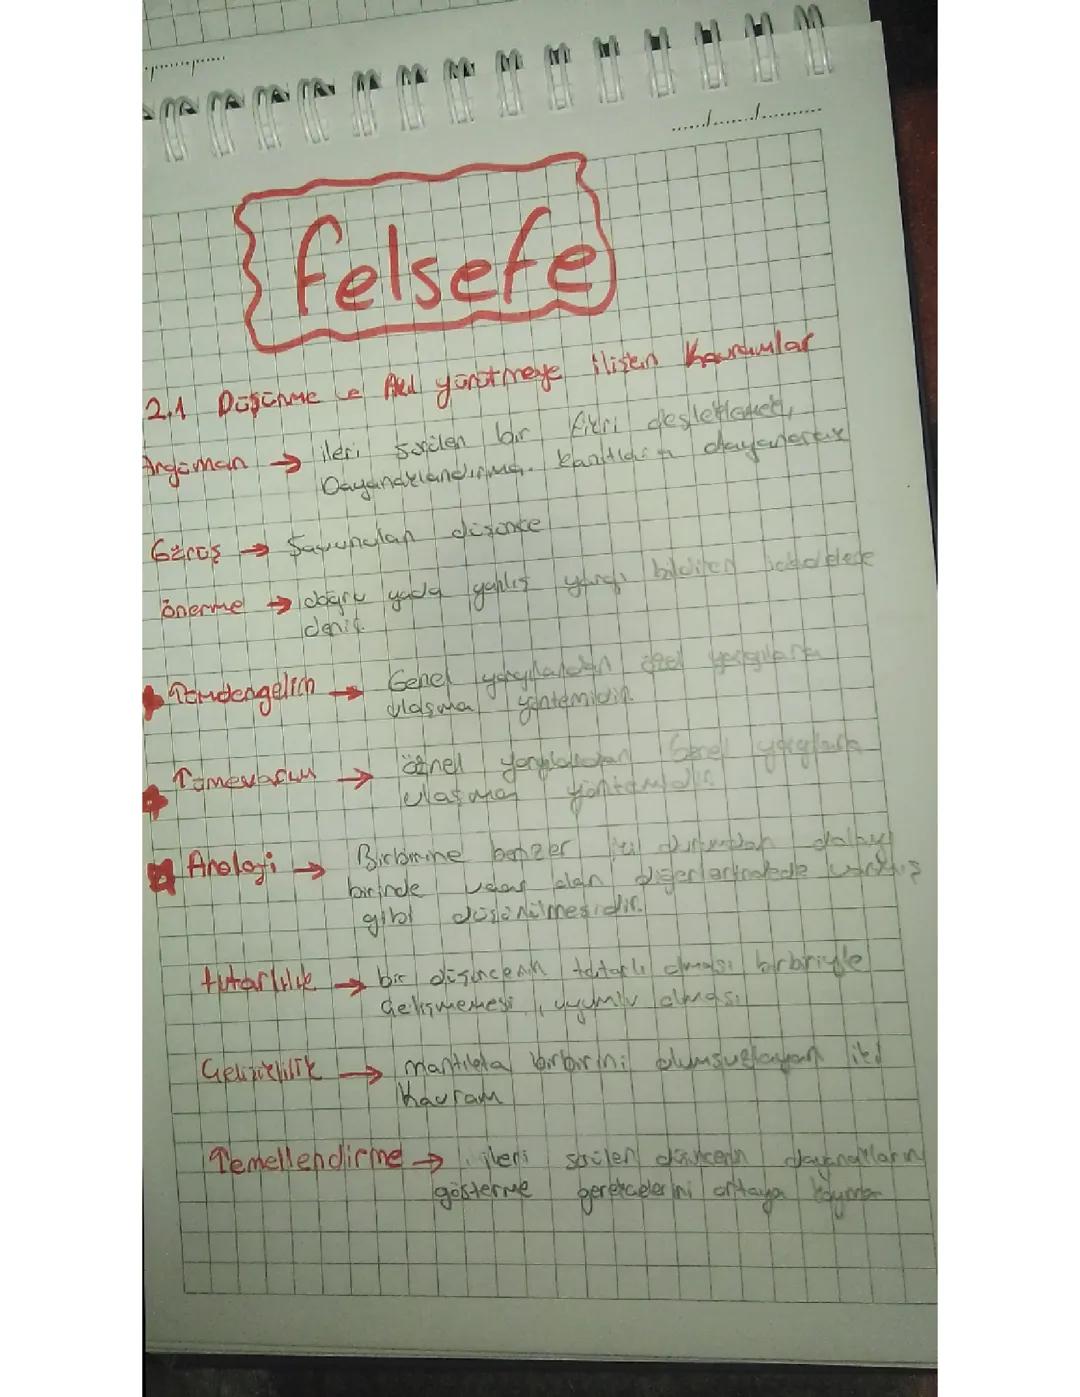 felsefe
2.1 Düşünme ve Akıl yürütmeye ilişen Kavramlar
Argüman → ileri sürülen bir fikri destekleme,
Dayanaklandırma. kanıtlara dayanarak
Görüş → Savunulan düşünce
önerme → doğru yada yanlış yargı bildiren
denir.
Tümdengelim → Genel yargılardan özel yargılara
ulaşma yöntemidir.
Tümevarım → öznel yargılardan Genel yargılara
ulaşma yöntemidir.
Analoji → Birbirine benzer iki durumdan dolayı
birinde olan diğerlerindede varmış
gibi düşünülmesidir.
tutarlılık → bir düşüncenin tutarlı olması birbiriyle
Çelişmemesi, uyumlu olması
Çelişiklik → mantıkta birbirini olumsuzlayan iki
Kavram
Temellendirme → ileri sürülen düşüncenin dayanakların
gösterme gerekçelerini ortaya koyma